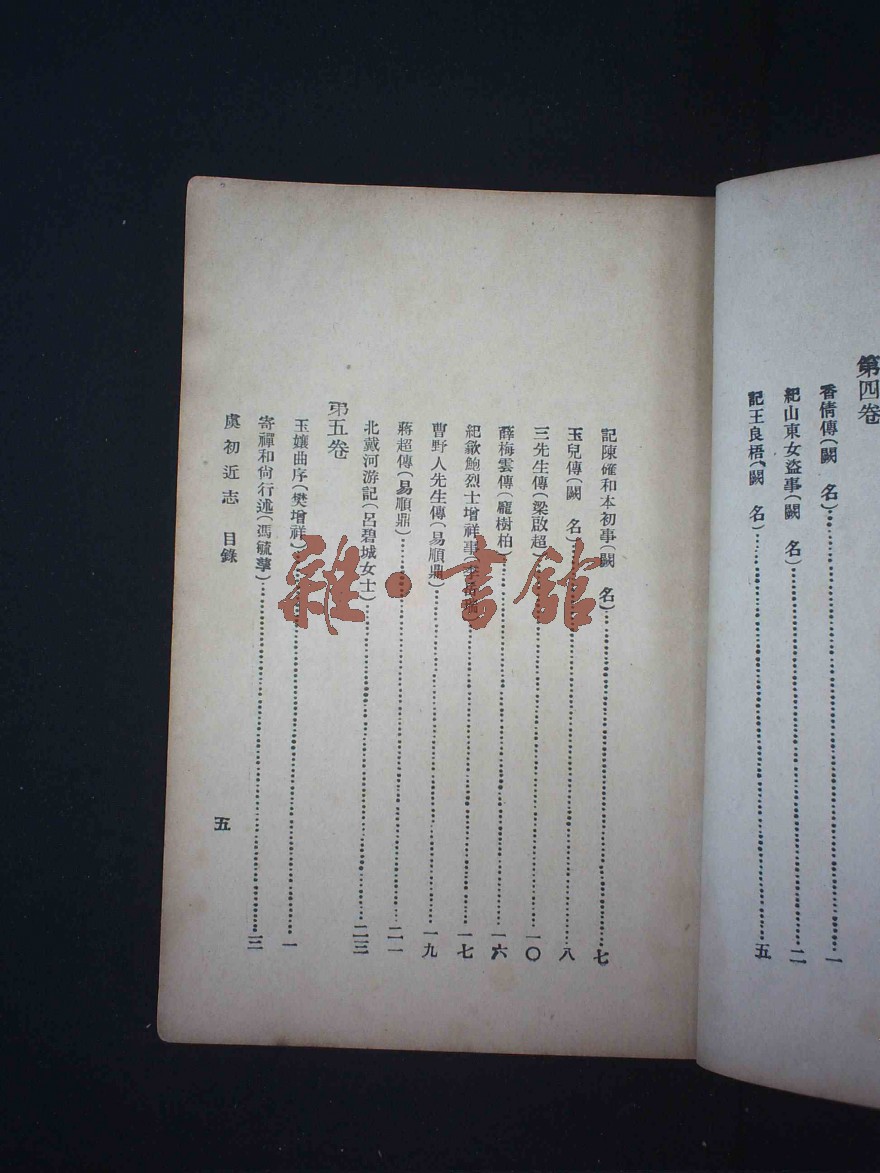 第四卷
香倩傳(闕 名)………一
紀山東女盜事(闕 名)………二
記王良梧(闕 名)………五
記陳確和本初事(闕 名)………七
玉兒傳(闕 名)………八
三先生傳(梁啟超)………一〇
薛梅雲傳(龐樹柏)………一六
紀歙鮑烈士增祥事(李岳瑞)………一七
曹野人先生傳(易順鼎)………一九
蔣超傳(易順鼎)………二一
北戴河游記(呂碧城女士)………二三
第五卷
玉孃曲序(樊增祥)………一
寄禪和尙行述(馮毓孳)………三
虞初近志 目錄
五
雜·書館